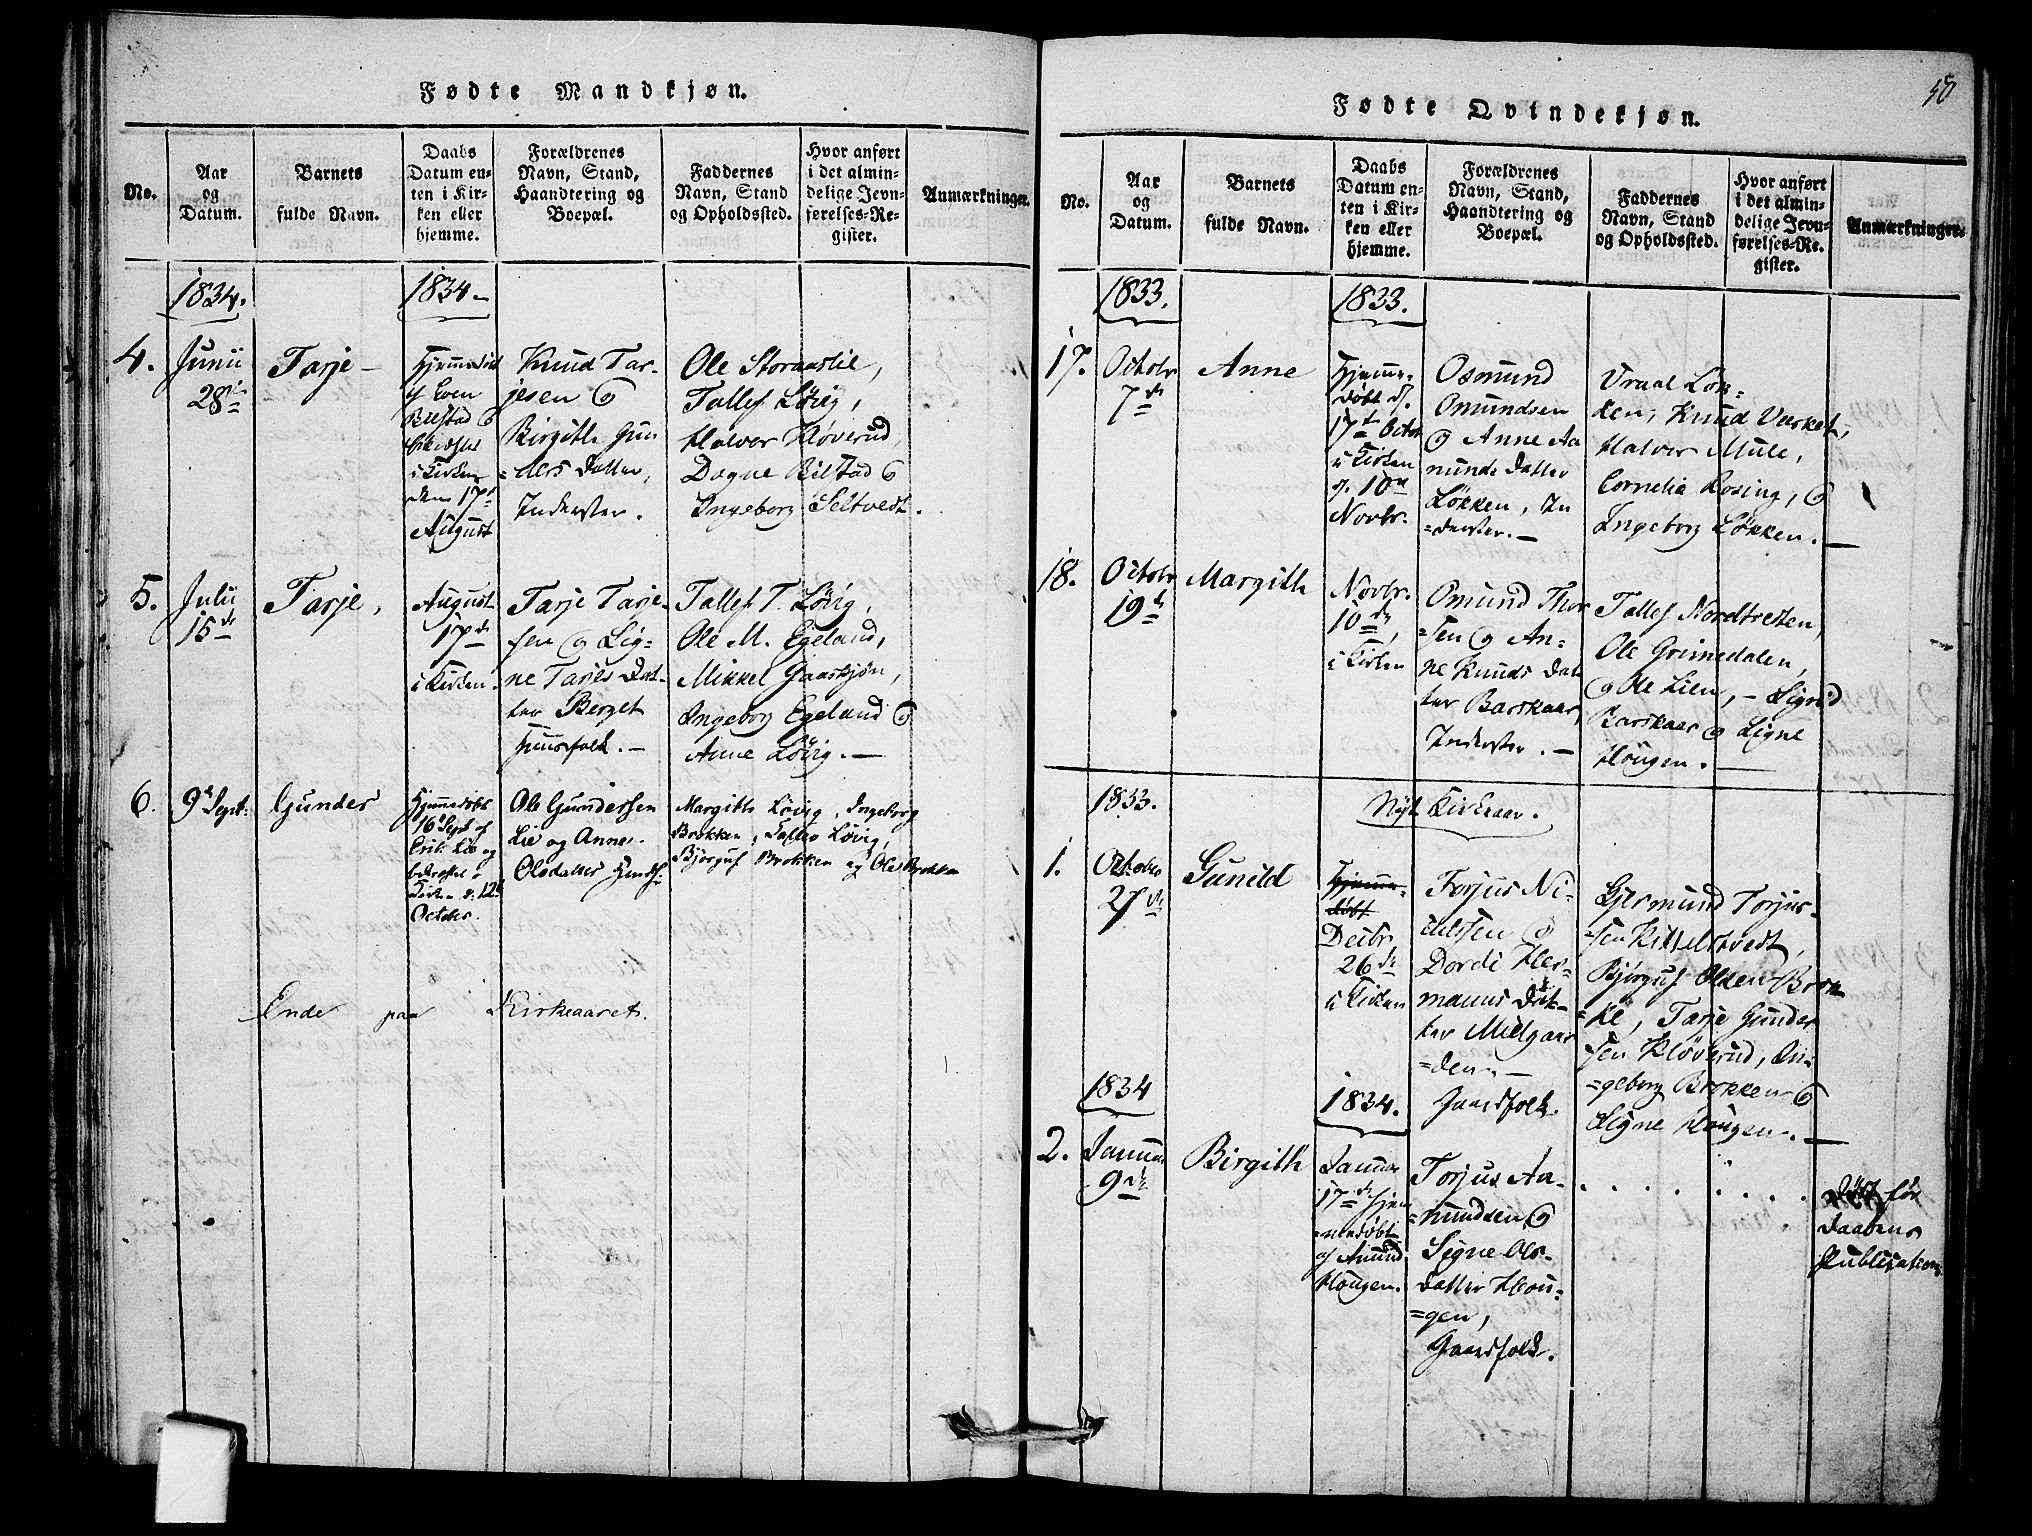 Fødte Mandkjøn.
No.
Aar
og
Datum.
Barnets
fulde Navn.
Daabs
Datum en-
ten i Kir-
ken eller
hjemme.
Forældrenes
Navn, Stand,
Haandtering og
Boepæl.
Faddernes
Navn, Stand
og Opholdssted.
Hvor anført
i det almin-
delige Jevn-
førelses-Re-
gister.
Anmærkninger.
1834.
1834
4.
Junii
28de
Tarje
Hjemmedöbt
af Even
Bilstad
i Kirken
den 17de
August
Knud Tar-
jesen og
Birgith Gun
=ders Datter,
Inderster.
Ole Storaaslie,
Tallef Lövig,
Halvor Klöverud,
Dagne Bilstad og
Ingeborg Seltvedt.
5.
Julii
15de
Tarje,
August
17de
i Kirken.
Tarje Tarje-
sen og Sig-
ne Tarjes Dat-
ter Berget
Huusfolk.
Tallef T. Lövig,
Ole M. Egeland,
Mikkel Gaaskjøn,
Ingeborg Egeland og
Anne Lövig.
6.
9de Sept.
Gunder
Hjemmedöbt
16de Sept af
Lie og
i
Kirken d. 12te
October.
Ole Gundersen
Lie og Anne
Olsdatter
Margith Lövig, Ingeborg
Brokken, Tallev Lövig,
Björguf Brokken og Ole Brokken
Ende paa Kirkeaaret.
50
Fødte Qvindekjøn.
No.
Aar
og
Datum.
Barnets
fulde Navn.
Daabs
Datum en-
ten i Kir-
ken eller
hjemme.
Forældrenes
Navn, Stand,
Haandtering og
Boepæl.
Faddernes
Navn, Stand
og Opholdssted.
Hvor anført
i det almin-
delige Jevn-
førelses-Re-
gister.
Anmærkninger.
1833.
1833.
17.
Octobr
7de
Anne
Hjemme-
döbt d.
17de Octbr
i Kirken
d. 10de
Novbr.
Osmund
Omundsen
og Anne Aa
munds Datter
Løkken, In
=derster.
Vraal Løk-
ken, Knud Værket,
Halvor Mule,
Cornelia Rosing, og
Ingeborg Løkken.
18.
Octobr
19de
Margith
Novbr.
10de
i Kirken
Omund Thor
=sen og An-
ne Knuds Dat
ter Barskaar,
Inderster.
Tallef Nordtveten,
Ole Grimedalen,
og Ole Lien, Sigrid
Barskaar og Signe
Hougen.
1833.
Nyt Kirkeaar.
1.
October
27de
Gunild
Hjemme-
döbt
Decbr
26de
i Kirken
Torjus Ni-
elssen og
Dordi Her-
manns Dat-
ter Midgaar
=den.
Gaardfolk.
Gjermund Torjus-
=sen Kittelstvedt,
Björguf Olsen Brok
=ke, Tarje Gunder
=sen Klöverud, In-
=geborg Brokken og
Signe Hougen.
1834
1834.
2.
Januar
9de
Birgith
Januar
17de Hjem
=medöbt
af Amund
Hougen.
Torjus Aa-
=mundsen og
Signe Ols-
Datter Hou-
=gen,
Gaardfolk.
Död för
Daabens
Publication